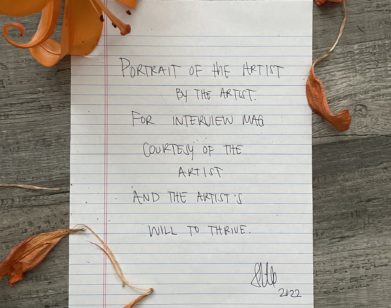 PORTRAIT OF THE ARTIST
BY THE ARTIST.
FOR INTERVIEW MAG
COURTESY OF THE
ARTIST
AND THE ARTIST'S
WILL TO THRIVE.
2022